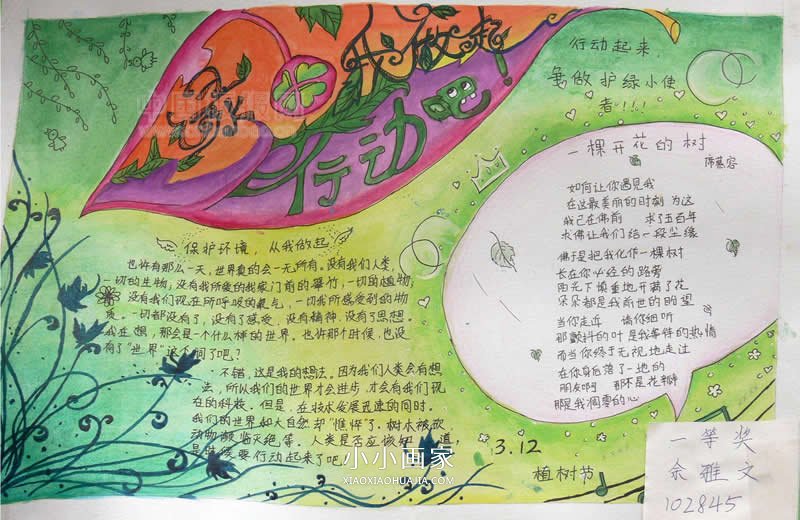 从我做起
行动吧!
行动起来,
争做护绿小使
者"!!!
一棵开花的树
席慕容
如何让你遇见我
在这最美丽的时刻 为这
我已在佛前 求了五百年
求佛让我们结一段尘缘
佛于是把我化作一棵树
长在你必经的路旁
阳光下慎重地开满了花
朵朵都是我前世的盼望
当你走近 请你细听
那颤抖的叶是我等待的热情
而当你终于无视地走过
在你身后落了一地的
朋友啊 那不是花瓣
那是我凋零的心
保护环境,从我做起
也许有那么一天,世界真的会一无所有。没有我们人类,
一切的生物;没有我所爱的我家门前的翠竹,一切的植物;
没有我们现在所呼吸的氧气,一切我所感受到的物
质。一切都没有了,没有了感受,没有精神,没有了思想。
我在想,那会是一个什么样的世界。也许那个时候,也没
有了"世界"这个词了吧?
不错,这是我的想法。因为我们人类会有想
法,所以我们的世界才会进步,才会有我们现
在的科技。但是,在技术发展迅速的同时。
我们的世界和大自然却"憔悴"了。树木被砍
动物濒临灭绝等。人类是否应该知道,
是时候要行动起来了吧
3.12
植树节
一等奖
余雅文
102845
小小画家
XIAOXIAOHUAJIA.COM